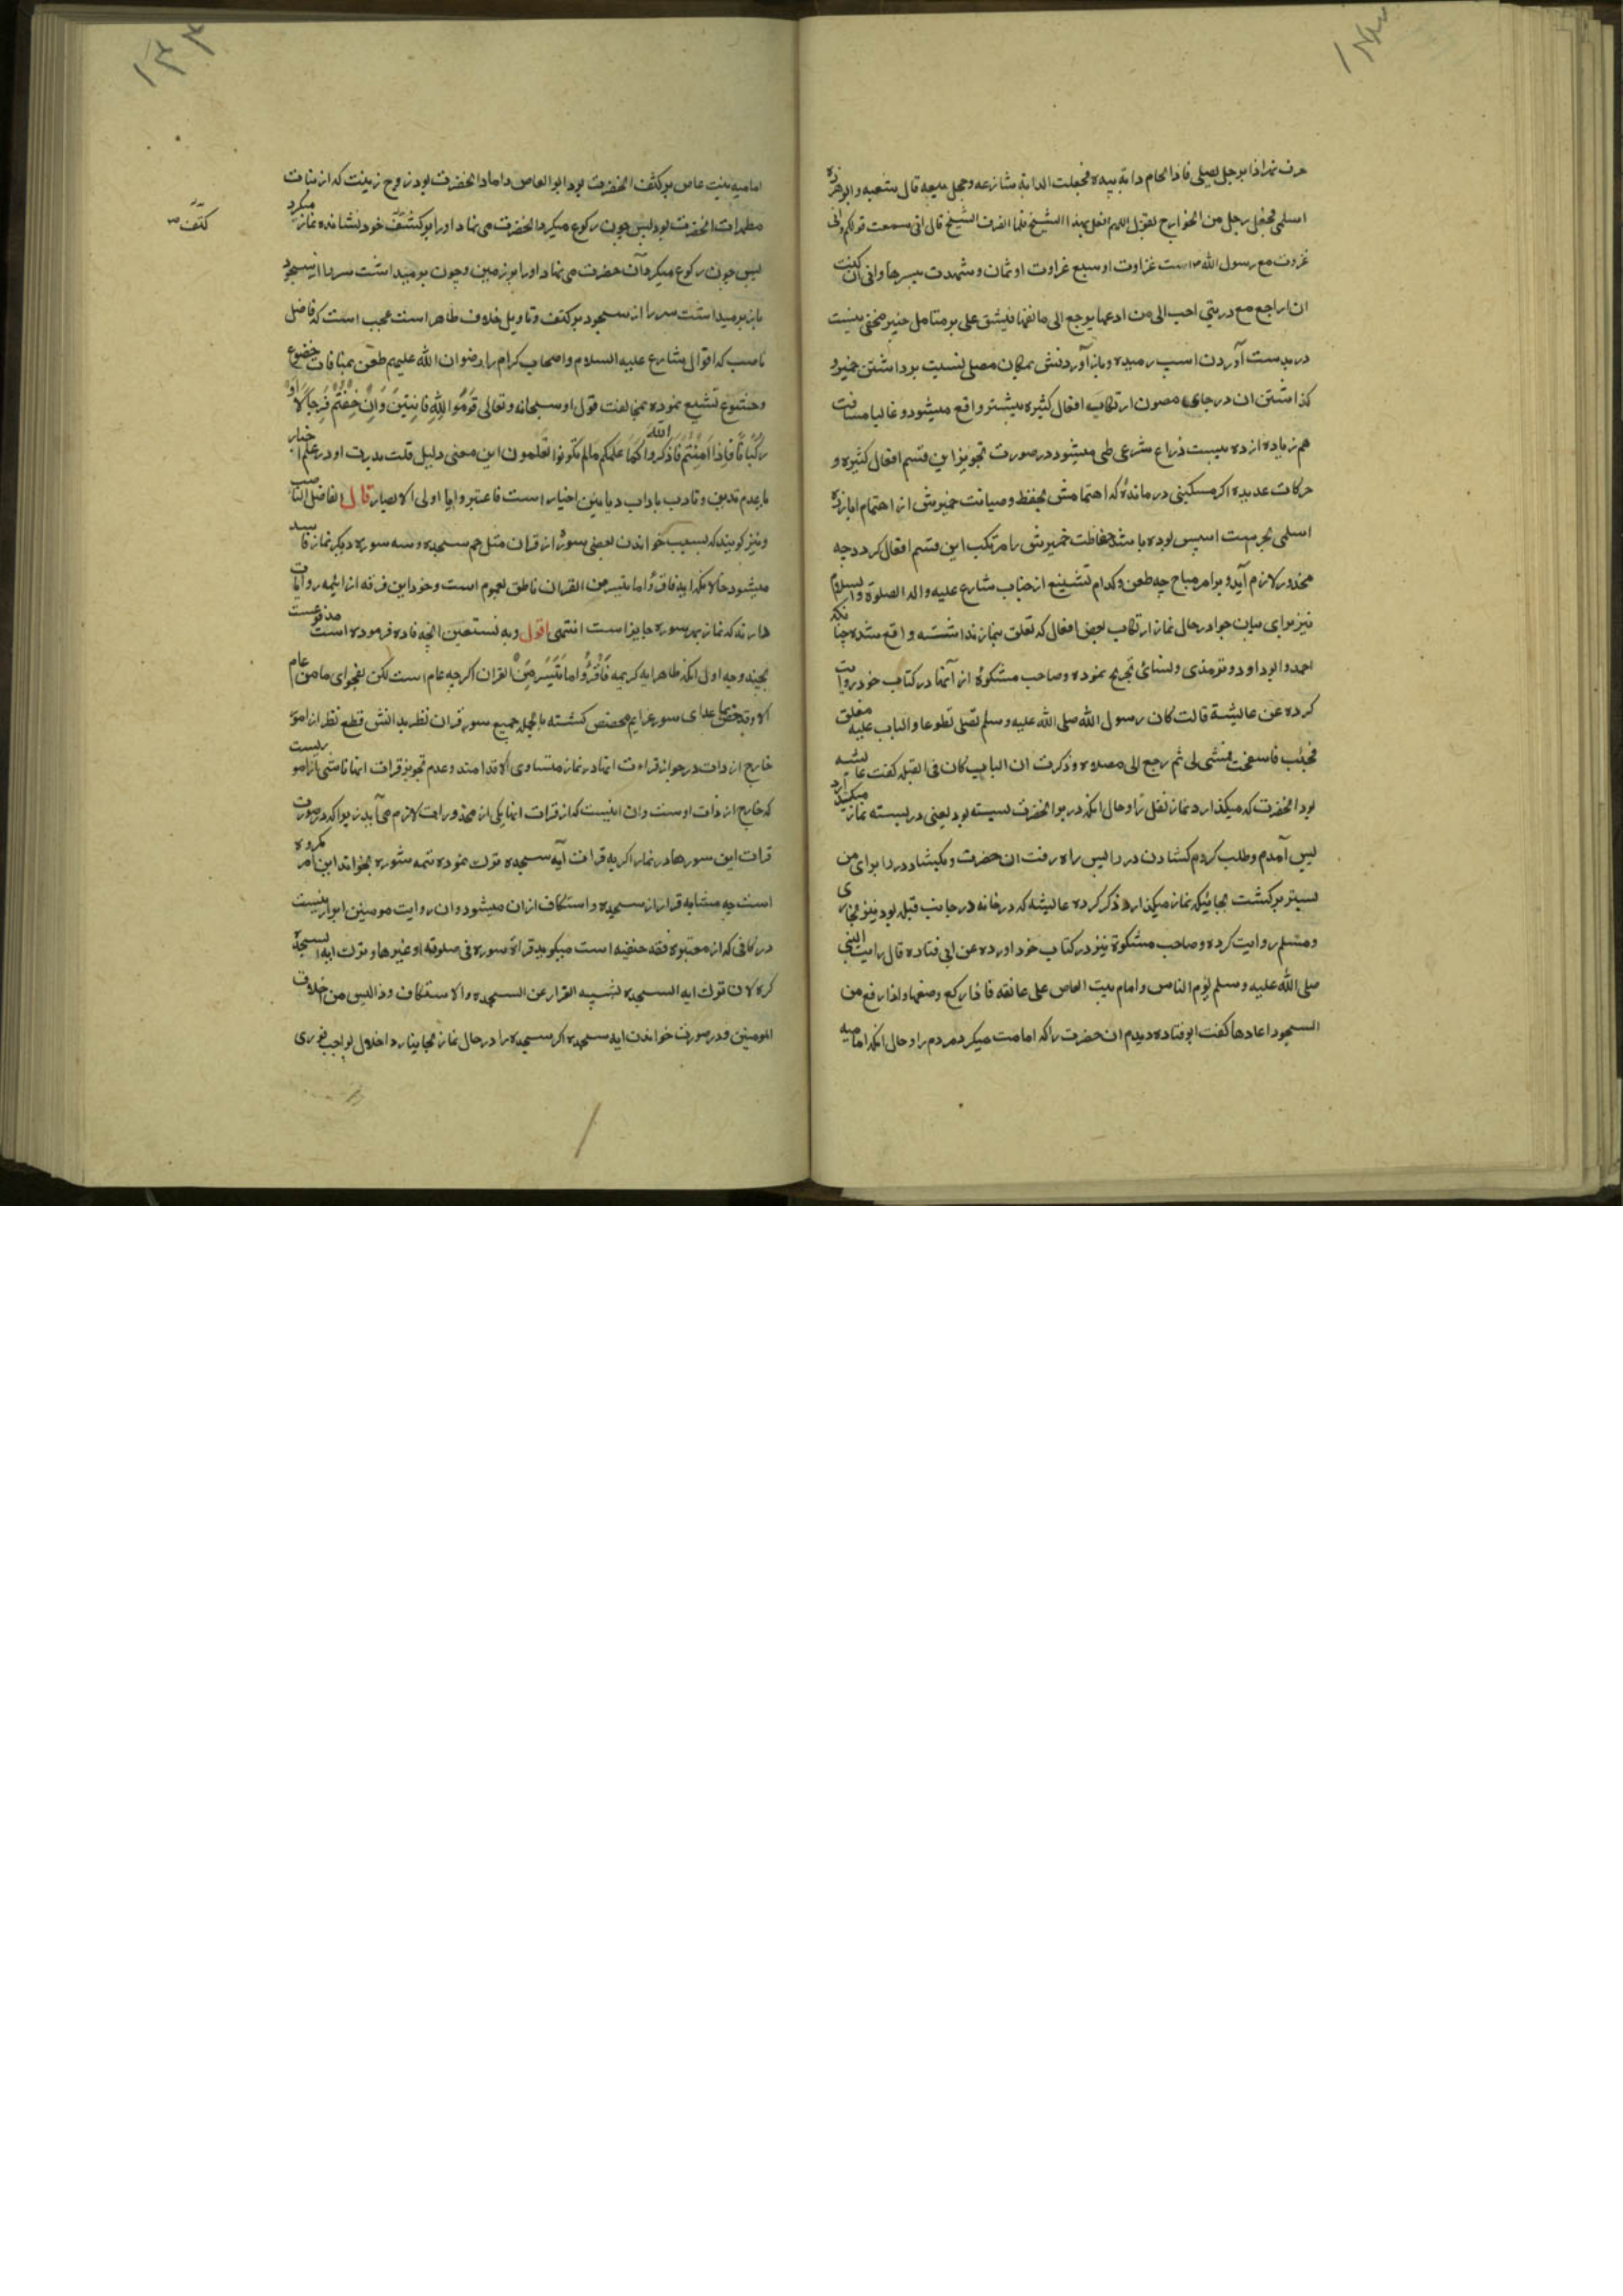 حرف نهر اذا برجل یصلی فاذا لجام دابة بیده فجعلت الدابة تنازعه وجعل یتبعه قال شعبه و ابو برزه
اسلمی فجعل رجل من الخوارج یقول اللهم افعل بهذا الشیخ فلما انصرف الشیخ قال انی سمعت قولکم وانی
غزوت مع رسول الله ست غزوات او سبع غزاوت او ثمان وشهدت تیسره وانی ان کنت
ان اراجع مع دابتی احب الی من ادعها یرجع الی مالفها فیشق علی بر متامل خبیر مخفی نیست
در بدست آوردن اسب رمیده و باز آوردنش بمکان مصلی نسبت برداشتن خمیر و
گذاشتن ان در جای مصون ارتکاب افعال کثیره بیشتر واقع میشود و غالبا مسافت
هم زیاده از ده بیست ذراع شرعی طی میشود در صورت تجویز این قسم افعال کثیره و
حرکات عدیده اگر مسکینی درمانده که اهتمامش بحفظ و صیانت خمیرش از اهتمام ابا برزه
اسلمی بحرمت اسپس بوده باشد بحفاظت خمیرش را مرتکب این قسم افعال کردد چه
محذور لازم آید و بر امر مباح چه طعن و کدام تشنیع از جناب شارع علیه واله الصلوة والسلام
نیز برای بیان جواز در حال نماز ارتکاب بعض افعال که تعلق بنماز نداشته واقع شده چنانکه
احمد و ابو داود و ترمذی و نسائی تخریج نموده و صاحب مشکوة از آنها در کتاب خود روایت
کرده عن عایشة قالت کان رسول الله صلی الله علیه وسلم یصلی تطوعا والباب علیه مغلق
فجئت فاستفتحت فمشی لی ثم رجع الی مصلاه وذکرت ان الباب کان فی القبله گفت عایشه
بود انحضرت که میگذارد نماز نفل را و حال انکه در بر انحضرت بسته بود یعنی در بسته نماز میکذارد
پس آمدم و طلب کردم کشادن در را پس راه رفت ان حضرت و بکشاد در را برای من
پستر برگشت بجائیکه نماز میکذارد و ذکر کرده عایشه که در خانه در جانب قبله بود نیز بخاری
و مسلم روایت کرده و صاحب مشکوة نیز در کتاب خود اورده عن ابی قتاده قال رایت النبی
صلی الله علیه وسلم یؤم الناس وامامه بنت العاص علی عاتقه فاذا رکع وضعها واذا رفع من
السجود اعادها گفت ابو قتاده دیدم ان حضرت را که امامت میکرد مردم را و حال انکه امامیه
امامیه بنت عاص بر کتف انحضرت بود ابو العاص داماد انحضرت بود زوج زینت که از بنات
مطهرات انحضرت بود پس چون رکوع میکرد انحضرت می نهاد او را بر کتف خود نشانده نماز میکرد
پس چون رکوع میکرد آن حضرت می نهاد او را بر زمین و چون بر میداشت سر را از سجود
باز بر میداشت سر را از سجود بر کتف و تاویل خلاف ظاهر است عجب است که فاضل
ناصب که اقوال شارع علیه السلام و اصحاب کرام را رضوان الله علیهم طعن بمنافات خضوع
و خشوع تشنیع نموده بمخالفت قول او سبحانه وتعالی قوموا لله قانتین وان خفتم فرجالا او
رکبانا فاذا امنتم فاذکروا الله کما علمکم مالم تکونوا تعلمون این معنی دلیل قلت تدبرت او در علم اخبار
یا بعدم تدین و تادب باداب دیانین اخیار است فاعتبروا یا اولی الابصار قال الفاضل الناصب
و نیز گویند که بسبب خواندن بعضی سوره از قران مثل حم سجده و سه سوره دیگر نماز فاسد
میشود حالانکه ایه فاقرؤا ما تیسر من القران ناطق بعموم است و خود این فرقه از ایمه روایات
دارند که نماز بهر سوره جایز است انتهی اقول وبه نستعین انچه فاده فرموده است مدفوعست
بچند وجه اول انکه ظاهر ایه کریمه فاقرؤا ما تیسر من القران اگر چه عام است لکن بفحوای ما من عام
الا وقد خص بما عدای سور عزایم مخصص گشته بالجمله جمیع سور قران نظر بدانش قطع نظر از امور
خارج از ذات در جواز قراءت انها در نماز متساوی الاقدامند و عدم تجویز قرات انها ناشی از امور یست
که خارج از ذات اوست وان اینست که از قرات انها یکی از محذورات لازم می آید زیرا که در صورت
قرات این سورها در نماز اگر به قرات آیه سجده ترک نموده تتمه سوره بخواند این امر مکروه
است چه مشابه قرار از سجده و استنکاف ازان میشود وان روایت مومنین ابرار نیست
در کافی که از معتبره فقه حنفیه است میگوید قرأ سوره فی صلوته او غیرها وترک ایه السجده
کره لان ترک ایه السجده یشبه الفرار عن السجده والاستنکاف وذا لیس من اخلاق
المومنین و در صورت خواندن ایه سجده اگر سجده را در حال نماز بجا نیارد اخلال بواجب فوری
کتف